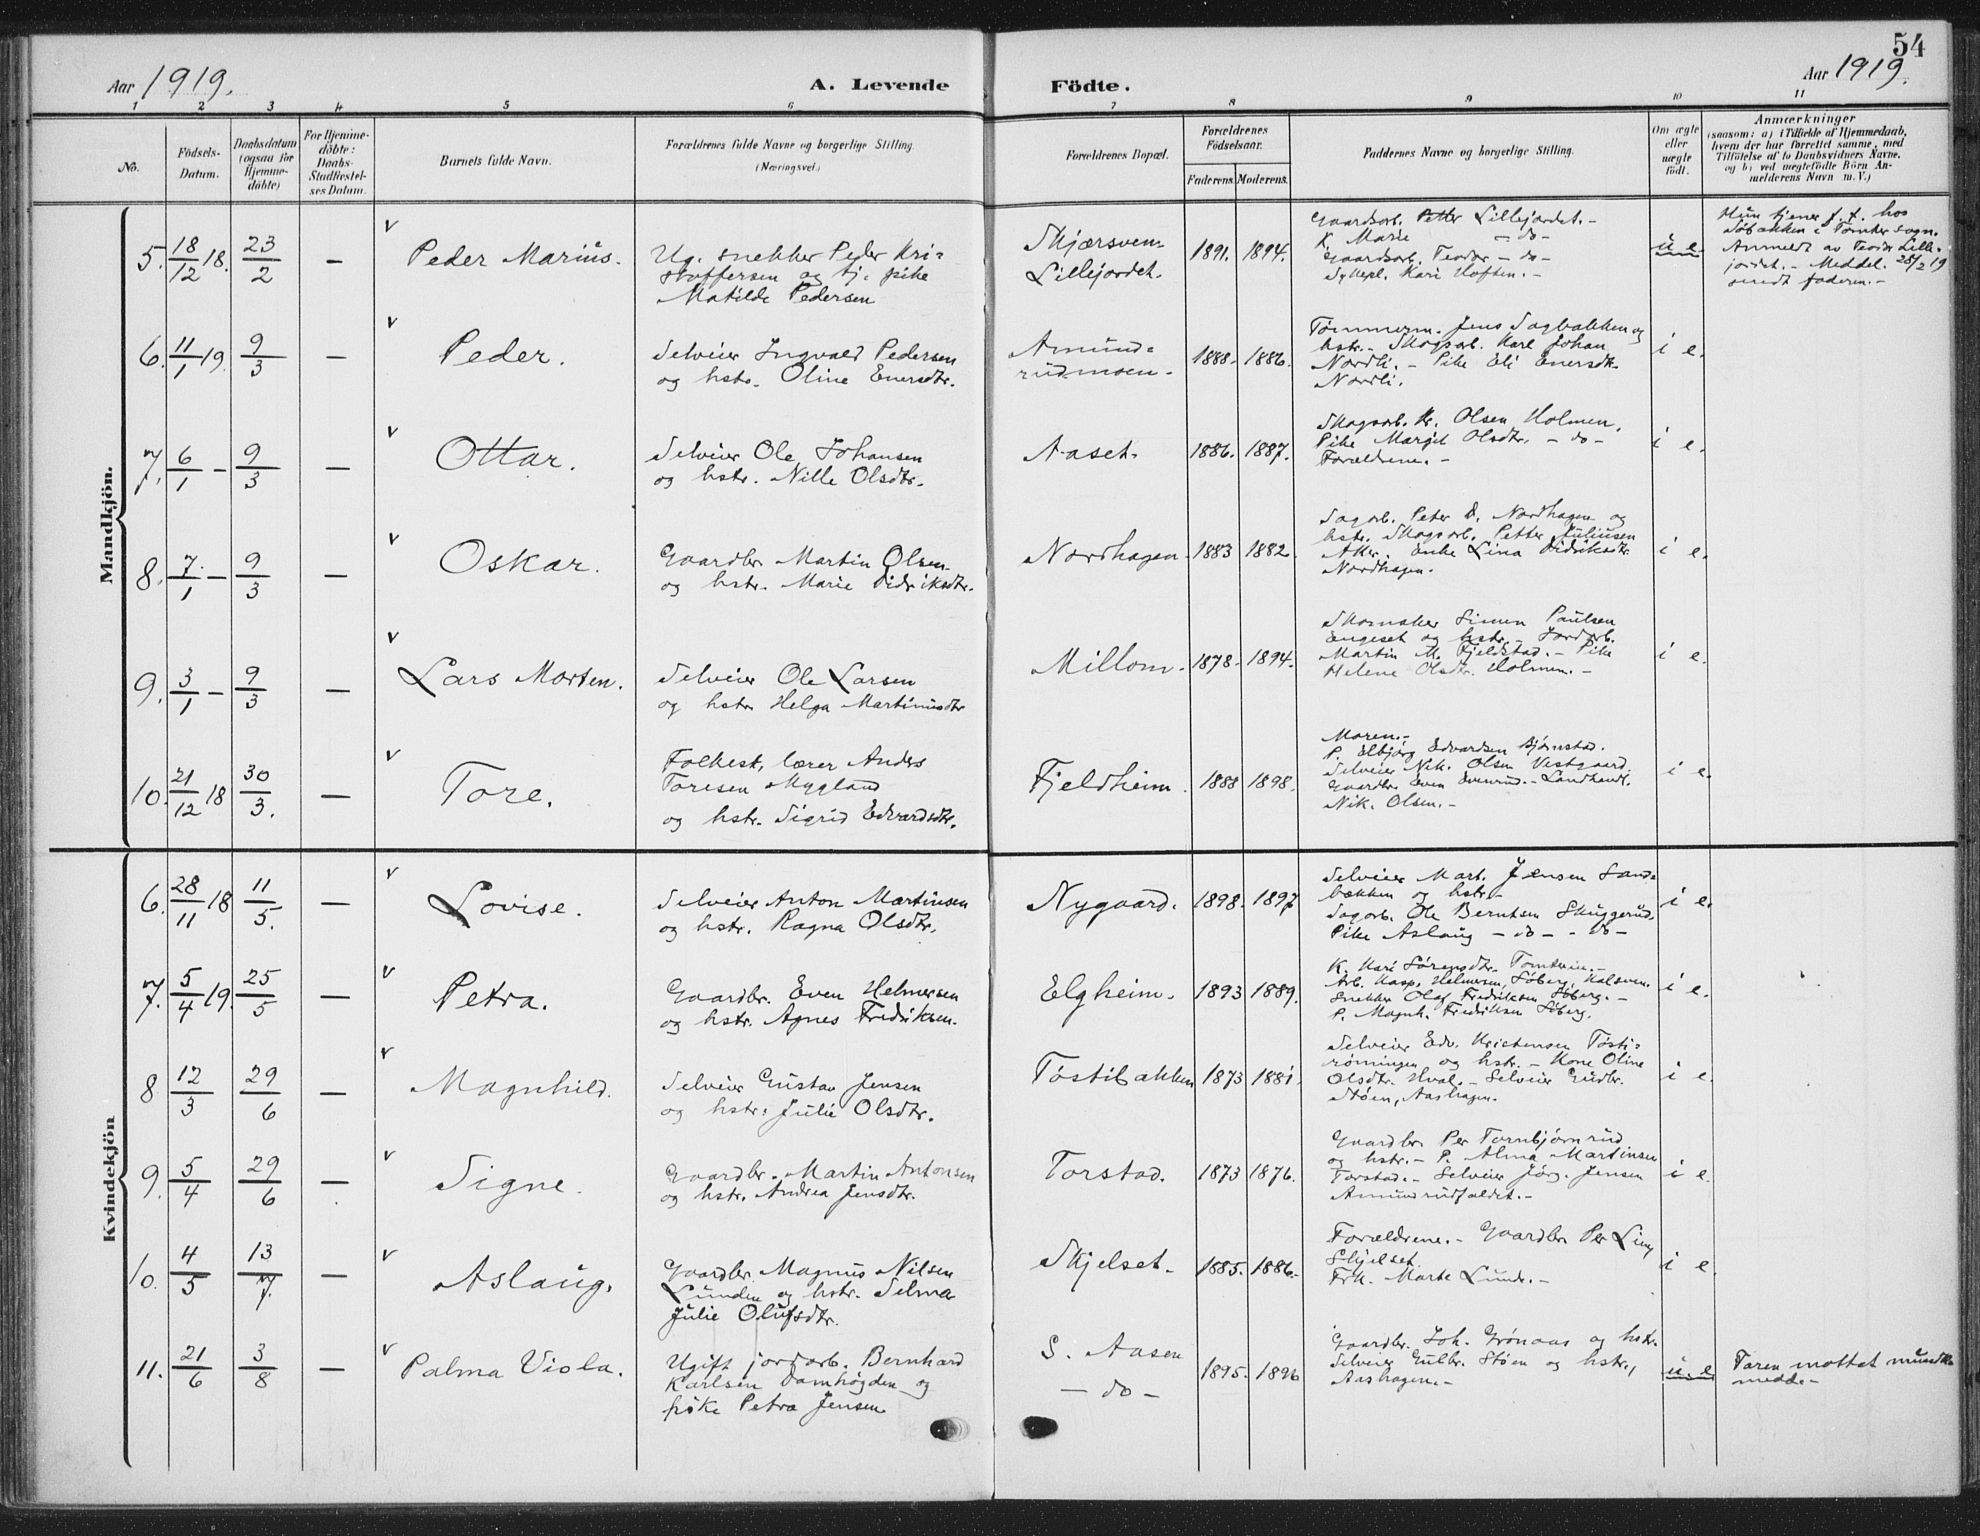 54
Aar 1919.
A. Levende
Födte.
Aar 1919.
1 2 3 4 5 6 7 8 9 10 11
No.
Födsels-
Datum.
Daabsdatum
(ogsaa för
Hjemme-
döbte)
For Hjemme-
döbte:
Daabs-
Stadfæstel-
ses Datum.
Barnets fulde Navn.
Forældrenes fulde Navne og borgerlige Stilling.
(Næringsvei.)
Forældrenes Bopæl.
Forældrenes
Födselsaar.
Faderens. Moderens.
Faddernes Navne og borgerlige Stilling.
Om ægte
eller
uægte
födt.
Anmærkninger
(saasom: a) i Tilfælde af Hjemmedaab,
hvem der har forrettet samme, med
Tilföielse af to Daabsvidners Navne,
og b) ved uægtefödte Börn An-
melderens Navn m. V.)
Mandkjön.
5. 18/12 18. 23/2 — Peder Marius.
Ug. snekker Peder Kri-
stoffersen og tj. pike
Matilde Pedersen
Skjærsven-
Lillejordet.
1891. 1894.
Gaardsarb. Petter Lillejordet. -
K. Marie — do -
Gaardsarb. Teodor - do -
Sykepl. Kari Hoften. -
u e.
Hun tjener f. t. hos
Anmeldt av Teodor Lille-
jordet. - Meddel. 28/2 19
sendt faderen. -
6. 11/1 19. 9/3 — Peder.
Selveier Ingvald Pedersen
og hstr. Oline Enersdtr.
Amund-
rudmoen -
1888. 1886.
Tømmerm. Jens Sagbakken og
hstr. - Skogsarb. Karl Johan
Nordli. - Pike Eli Enersdtr.
Nordli.
i e.
7. 6/1 — 9/3 — Ottar.
Selveier Ole Johansen
og hstr. Nille Olsdtr.
Aaset.
1886. 1887.
Skogsarb. Kr. Olsen Holmen.
Pike Margit Olsdtr. - do -
Forældrene. -
i e.
8. 7/1 — 9/3 — Oskar.
Gaardbr. Martin Olsen
og hstr. Marie Didriksdtr.
Nordhagen.
1883 1882.
Sagarb. Peter D. Nordhagen og
hstr. Skogsarb. Petter Juliusen
Aker. Enke Lina Didriksdtr.
Nordhagen.
i e.
9. 3/1 — 9/3 — Lars Morten.
Selveier Ole Larsen
og hstr. Helga Martinusdtr
Millom.
1878. 1894.
Skomaker Simen Paulsen
Engeset og hstr. Jordarb.
Martin M. Fjeldstad. - Pike
Helene Olsdtr. Holmen. -
i e.
10. 21/12 18 30/3. — Tore.
Folkesk. lærer Anders
Toresen Mygland
og hstr. Sigrid Edvardsdtr.
Fjeldheim.
1888 1898.
Moren. -
P. Elbjørg Edvardsen Bjørnstad.
Selveier Nik. Olsen Vestgaard.
Gaardbr. Even Evenrud. - Landhandl.
Nik. Olsen. -
i e.
Kvindekjön
6. 28/11 18 11/5. — Lovise.
Selveier Anton Martinsen
og hstr. Ragna Olsdtr.
Nygaard.
1898. 1897
Selveier Mart. Jensen Sand-
bækken og hstr. -
Sagarb. Ole Berntsen Skuggerud.
Pike Aslaug - do - - do -
i e.
7. 5/4 19. 25/5 — Petra.
Gaardbr. Even Helmersen
og hstr. Agnes Fredriksen.
Elgheim.
1893 1889.
K. Kari Sørensdtr.
Arb. Kasp. Helmersen, Søberg, Halsven.
Snekker Olaf Fredriksen Søberg. -
P. Magnh. Fredriksen Søberg.
i e.
8 12/3 29/6 — Magnhild.
Selveier Gustav Jensen
og hstr. Julie Olsdtr.
Tøstibakken
1873 1881.
Selveier Edv. Kristensen Tøsti-
rønningen og hstr. - Kone Oline
Olsdtr. Hval. - Selveier Gudbr.
Støen, Aashagen.
i e.
9. 5/4 29/6 — Signe.
Gaardbr. Martin Antonsen
og hstr. Andrea Jensdtr.
Torstad.
1873 1876.
Gaardbr. Per Tornbjørnrud
og hstr. - P. Alma Martinsen
Torstad. - Selveier Jørg. Jensen
Amundrudfaldet. -
i e.
10. 4/5 13/7. — Aslaug.
Gaardbr. Magnus Nilsen
Lunden og hstr. Selma
Julie Olufsdtr.
Skjelset.
1885. 1886.
Forældrene. - Gaardbr. Per
Skjelset
Frk. Marte Lunde. -
i e.
11. 21/6 3/8 — Palma Viola.
Ugift jordarb. Bernhard
Karlsen Damhøgden og
pike Petra Jensen
S. Aasen
— do —
1895. 1896
Gaardbr. Joh. Grønaas og hstr.
Selveier Gulbr. Støen og hstr.,
Aashagen. -
u. e.
Faren mottat mundtl.
medd. -